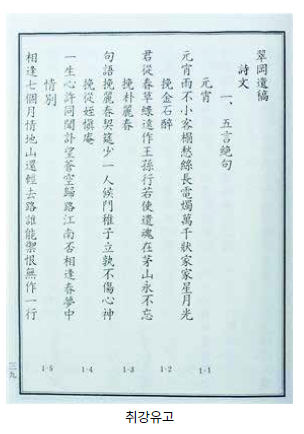 翠岡遺稿
詩文
一、五言絶句
元宵
元宵雨不小谷榻愁綠長電燭萬千狀家家星月光
1-1
挽金石醉
君從春草綠遠作王孫行若使遺魂在茅山永不忘
1-2
挽朴麗春
句語挽麗春契筵少一人候門稚子立孰不傷心神
1-3
挽從姪愼庵
一生心許同聞訃望蒼空歸路江南否相逢春夢中
1-4
情別
相逢七個月情地山還輕去路誰能禦恨無作一行
1-5
三九
취강유고